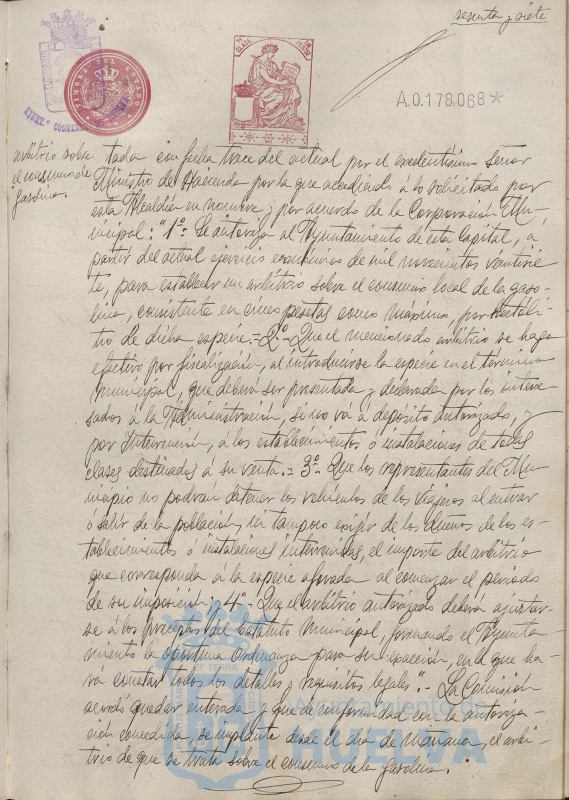 sesenta y siete
TIMBRE DEL ESTADO
A.0.178.068*
arbitrio sobre
el consumo de
gasolina.
tada con fecha trece del actual por el excelentísimo señor
Ministro de Hacienda por la que accediendo á lo solicitado por
esta Alcaldía en nombre y por acuerdo de la Corporación Mu-
nicipal: "1º Se autoriza al Ayuntamiento de esta Capital, a
partir del actual ejercicio económico de mil novecientos veintisie-
te, para establecer un arbitrio sobre el consumo local de la gaso-
lina, consistente en cinco pesetas como máximo, por hectóli-
tro de dicha especie.=2º- Que el mencionado arbitrio se haga
efectivo por fiscalización, al introducirse la especie en el término
municipal, que deberá ser presentada y declarada por los intere-
sados á la Administración, si no va á depósito autorizado, y
por Intervención, á los establecimientos ó instalaciones de todas
clases destinados á su venta.= 3º- Que los representantes del Mu-
nicipio no podrán detener los vehículos de los viajeros al entrar
ó salir de la población, ni tampoco exigir de los dueños de los es-
tablecimientos ó instalaciones intervenidas, el importe del arbitrio
que corresponda á la especie aforada al comenzar el período
de su imposición; y 4º- Que el arbitrio autorizado deberá ajustar-
se á los preceptos del Estatuto Municipal, formando el Ayunta-
miento la oportuna Ordenanza para su exacción, en la que ha-
rá constar todos los detalles y requisitos legales".- La Comisión
acordó quedar enterada y que de conformidad con la autoriza-
ción concedida, se implante desde el día de mañana, el arbi-
trio de que se trata sobre el consumo de la gasolina.
Ayuntamiento de
HUELVA